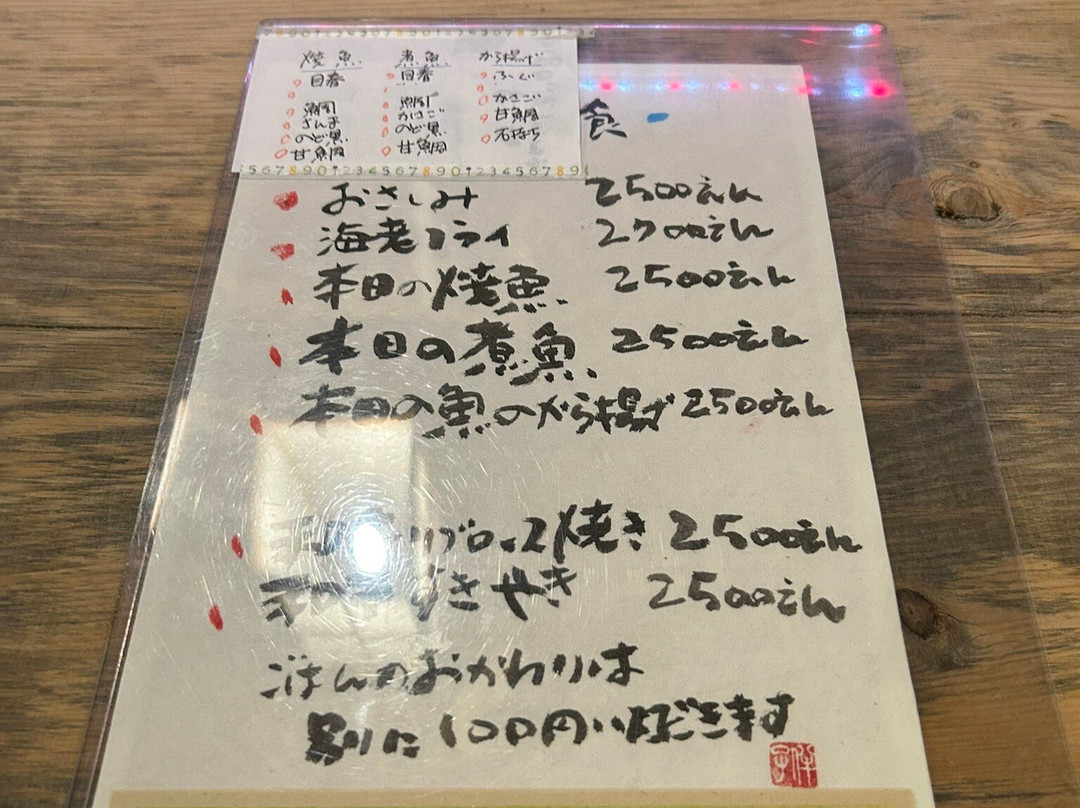 焼魚
目春
鯛
さんま
のど黒
甘鯛
煮魚
目春
鯛
かさご
のど黒
甘鯛
から揚げ
ふぐ
かさご
甘鯛
石持ち
食
おさしみ 2500えん
海老フライ 2700えん
本日の焼魚 2500えん
本日の煮魚 2500えん
本日の魚のから揚げ 2500えん
リブロース焼き 2500えん
すきやき 2500えん
ごはんのおかわりは
別に100円いただきます